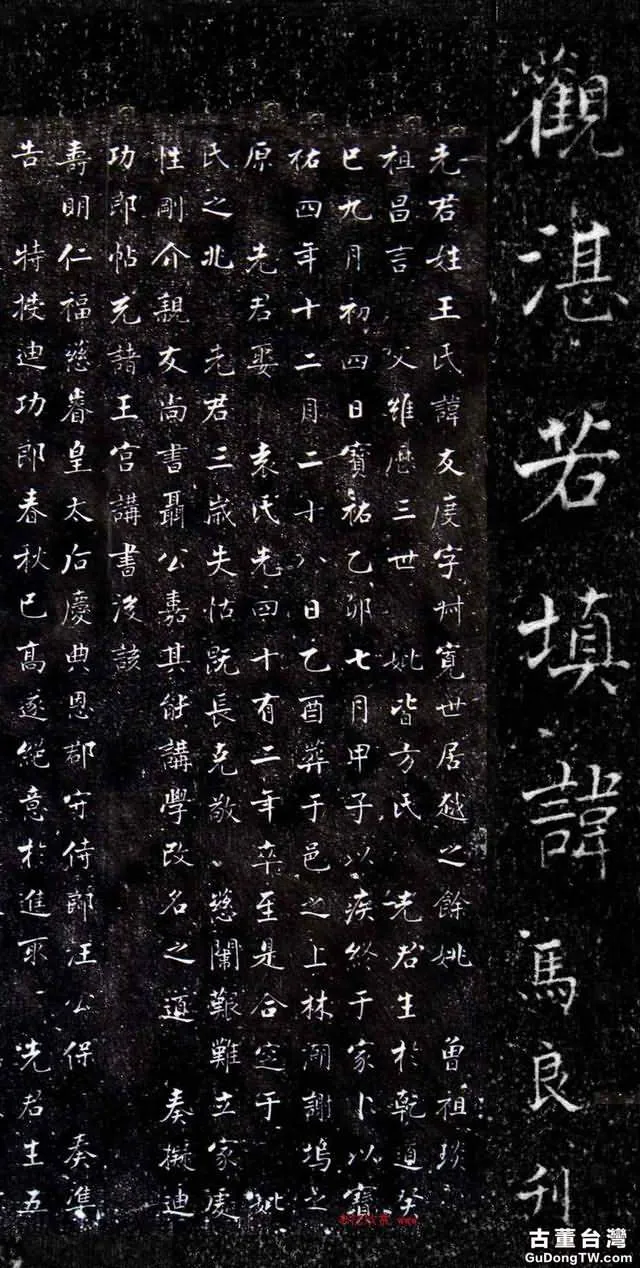 觀湛若填諱 馬良刊
先君姓王氏諱友度字艸寬世居越之餘姚 曾祖
祖昌言 父維歷三世 妣皆方氏 先君生於乾道癸
巳九月初四日寶祐乙卯七月甲子以疾終于家卜以寶
祐四年十二月二十八日乙酉葬于邑之上林湖謝塢之
原 先君娶 袁氏先四十有二年卒至是合窆于 妣
氏之兆 先君三歲失怙旣長克敬 慈闈艱難立家處
性剛介親友尚書聶公嘉其能講學改名之道 奏擬迪
功郎帖充諸王宮講書後該
壽明仁福慈睿皇太后慶典恩郡守侍郎汪公保 奏準
告 特授迪功郎春秋已高遂絕意於進取 先君生五
古董台灣
GuDongTW.com